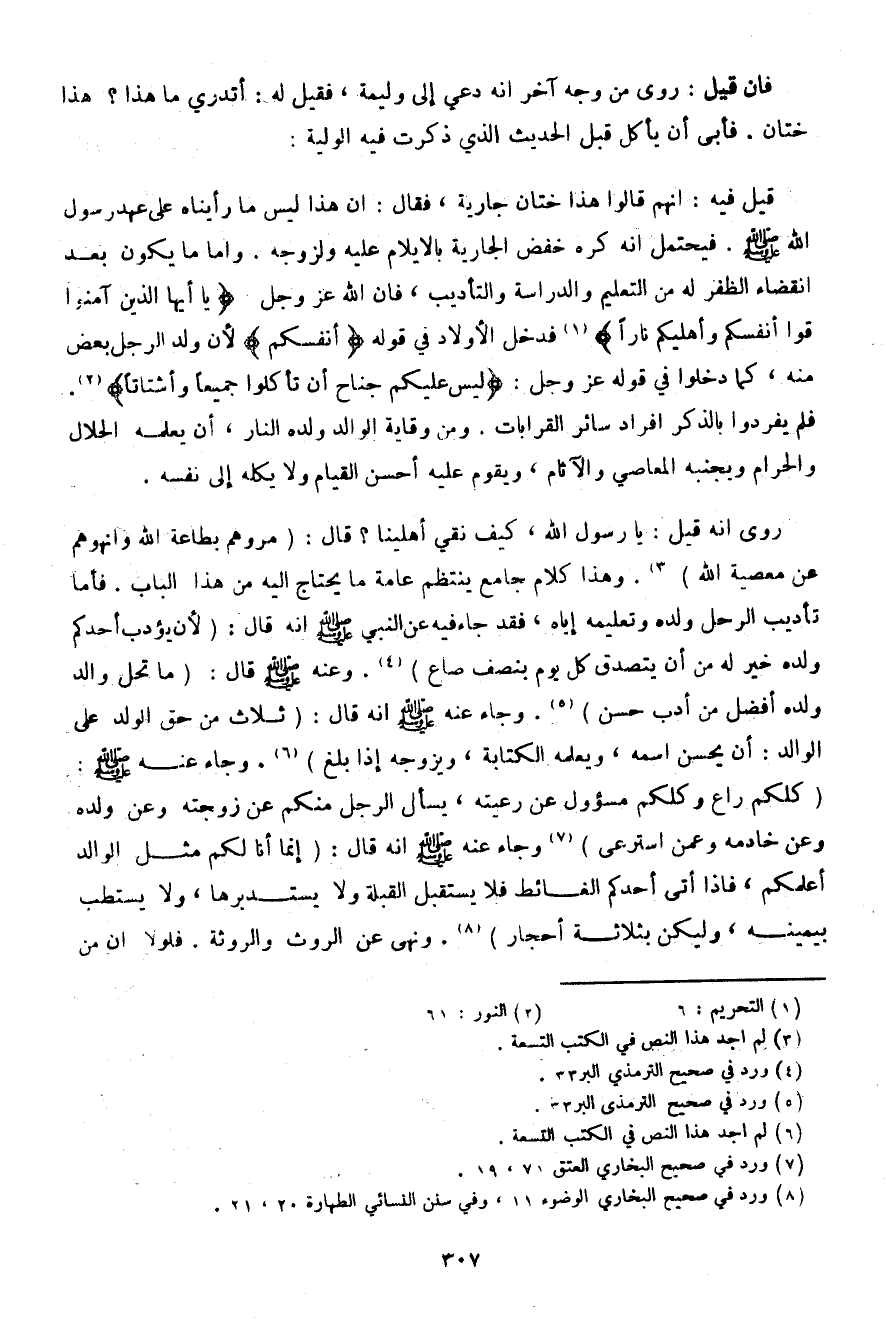 فان قيل : روى من وجه آخر انه دعي إلى وليمة ، فقيل له : أتدري ما هذا ؟ هذا
ختان . فأبى أن يأكل قبل الحديث الذي ذكرت فيه الولية :
قيل فيه : انهم قالوا هذا ختان جارية ، فقال : ان هذا ليس ما رأيناه على عهد رسول
الله ﷺ . فيحتمل انه كره خفض الجارية بالايلام عليه ولزوجه . واما ما يكون بعد
انقضاء الظفر له من التعليم والدراسة والتأديب ، فان الله عز وجل ﴿ يا أيها الذين آمنوا
قوا أنفسكم وأهليكم ناراً ﴾ (١) فدخل الأولاد في قوله ﴿ أنفسكم ﴾ لأن ولد الرجل بعض
منه ، كما دخلوا في قوله عز وجل : ﴿ليس عليكم جناح أن تأكلوا جميعاً وأشتاتاً﴾ (٢) .
فلم يفردوا بالذكر افراد سائر القرابات . ومن وقاية الوالد ولده النار ، أن يعلمه الحلال
والحرام ويجنبه المعاصي والآثام ، ويقوم عليه أحسن القيام ولا يكله إلى نفسه .
روى انه قيل : يا رسول الله ، كيف نقي أهلينا ؟ قال : ( مروهم بطاعة الله وانهوهم
عن معصية الله ) ٣) . وهذا كلام جامع ينتظم عامة ما يحتاج اليه من هذا الباب . فأما
تأديب الرحل ولده وتعليمه إياه ، فقد جاء فيه عن النبي ﷺ انه قال : ( لأن يؤدب أحدكم
ولده خير له من أن يتصدق كل يوم بنصف صاع ) (٤) . وعنه ﷺ قال : ( ما تحل والد
ولده أفضل من أدب حسن ) (٥) . وجاء عنه ﷺ انه قال : ( ثلاث من حق الولد على
الوالد : أن يحسن اسمه ، ويعلمه الكتابة ، ويزوجه إذا بلغ ) (٦) . وجاء عنه ﷺ :
( كلكم راع وكلكم مسؤول عن رعيته ، يسأل الرجل منكم عن زوجته وعن ولده
وعن خادمه وعمن استرعى ) (٧) وجاء عنه ﷺ انه قال : ( إنما أنا لكم مثل الوالد
أعلمكم ، فاذا أتى أحدكم الغائط فلا يستقبل القبلة ولا يستدبرها ، ولا يستطب
بيمينه ، وليكن بثلاثة أحجار ) (٨) . ونهى عن الروث والروثة . فلولا ان من
(١) التحريم : ٦ (٢) النور : ٦١
(٣) لم اجد هذا النص في الكتب التسعة .
(٤) ورد في صحيح الترمذي البر٣٣ .
(٥) ورد في صحيح الترمذى البر٣٣ .
(٦) لم اجد هذا النص في الكتب التسعة .
(٧) ورد في صحيح البخاري العتق ٧١ ، ١٩ .
(٨) ورد في صحيح البخاري الوضوء ١١ ، وفي سنن النسائي الطهارة ٢٠ ، ٢١ .
٣٠٧